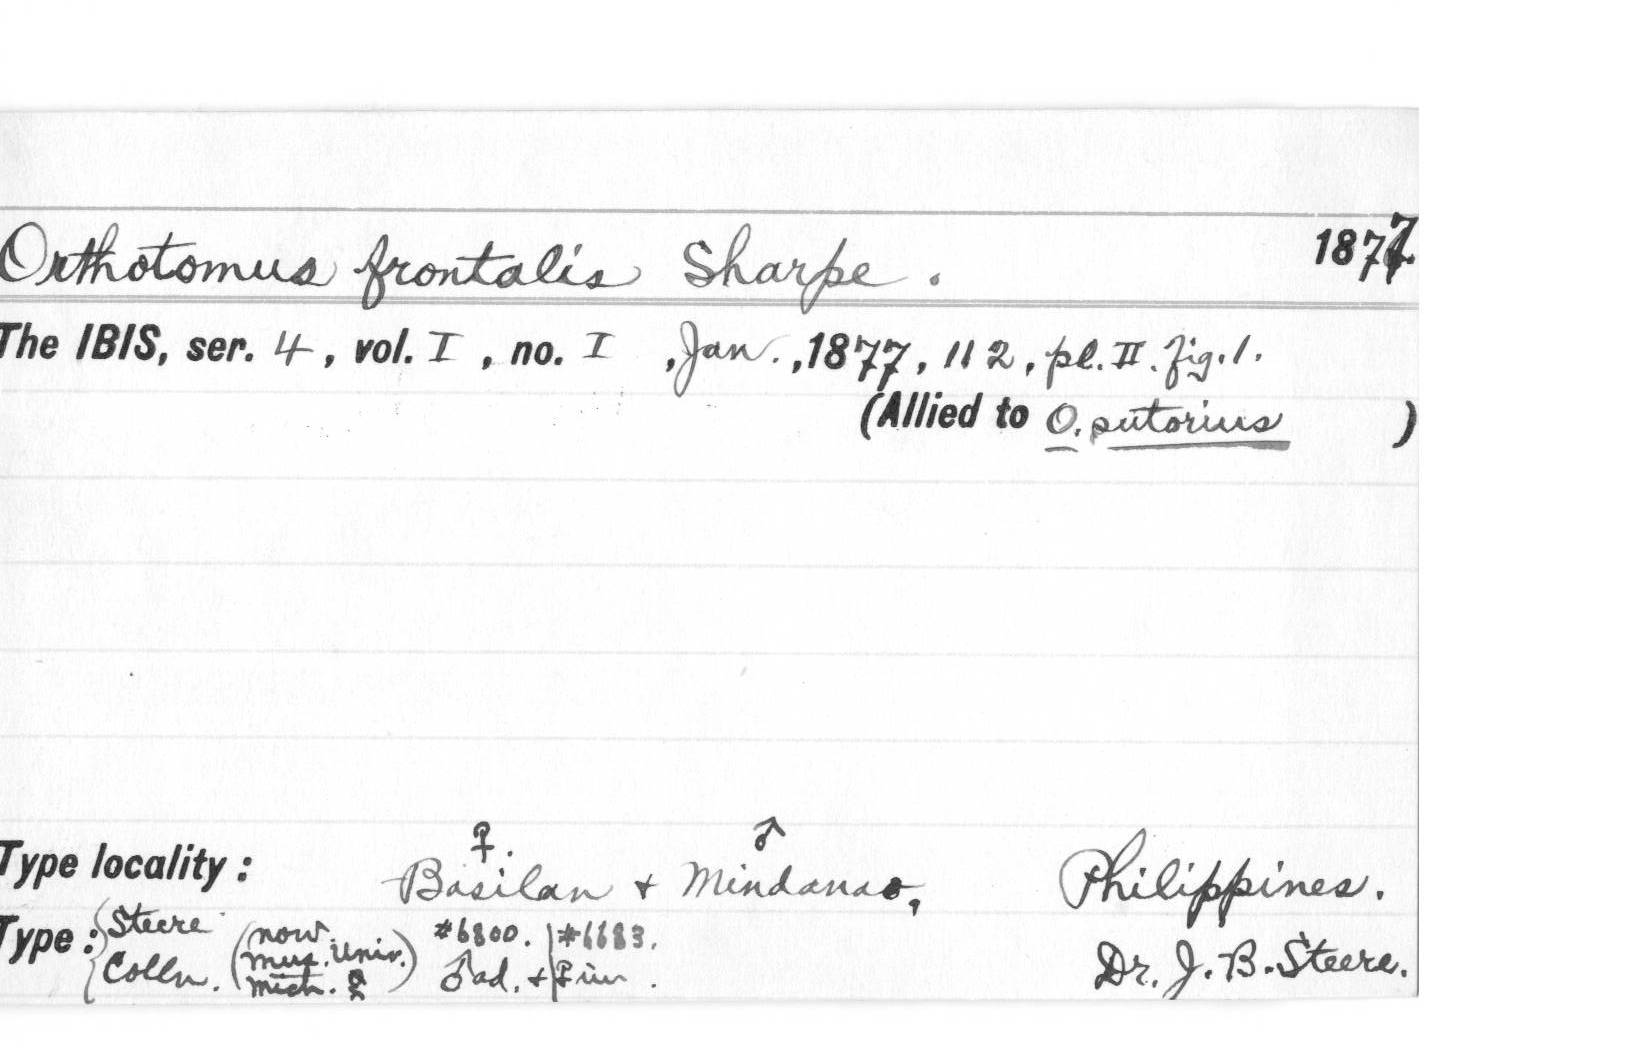 Orthotomus frontalis Sharpe. 1877.
The IBIS, ser. 4, vol. I, no. I, Jan., 1877, 112, pl. II. fig. 1.
(Allied to O. sutorius )
♀. ♂
Type locality: Basilan + Mindanao, Philippines.
Type: Steere (now #6800. #6683.
Colln. Mus. Univ. Mich. ) ♂ad. + ♀ Dr. J. B. Steere.